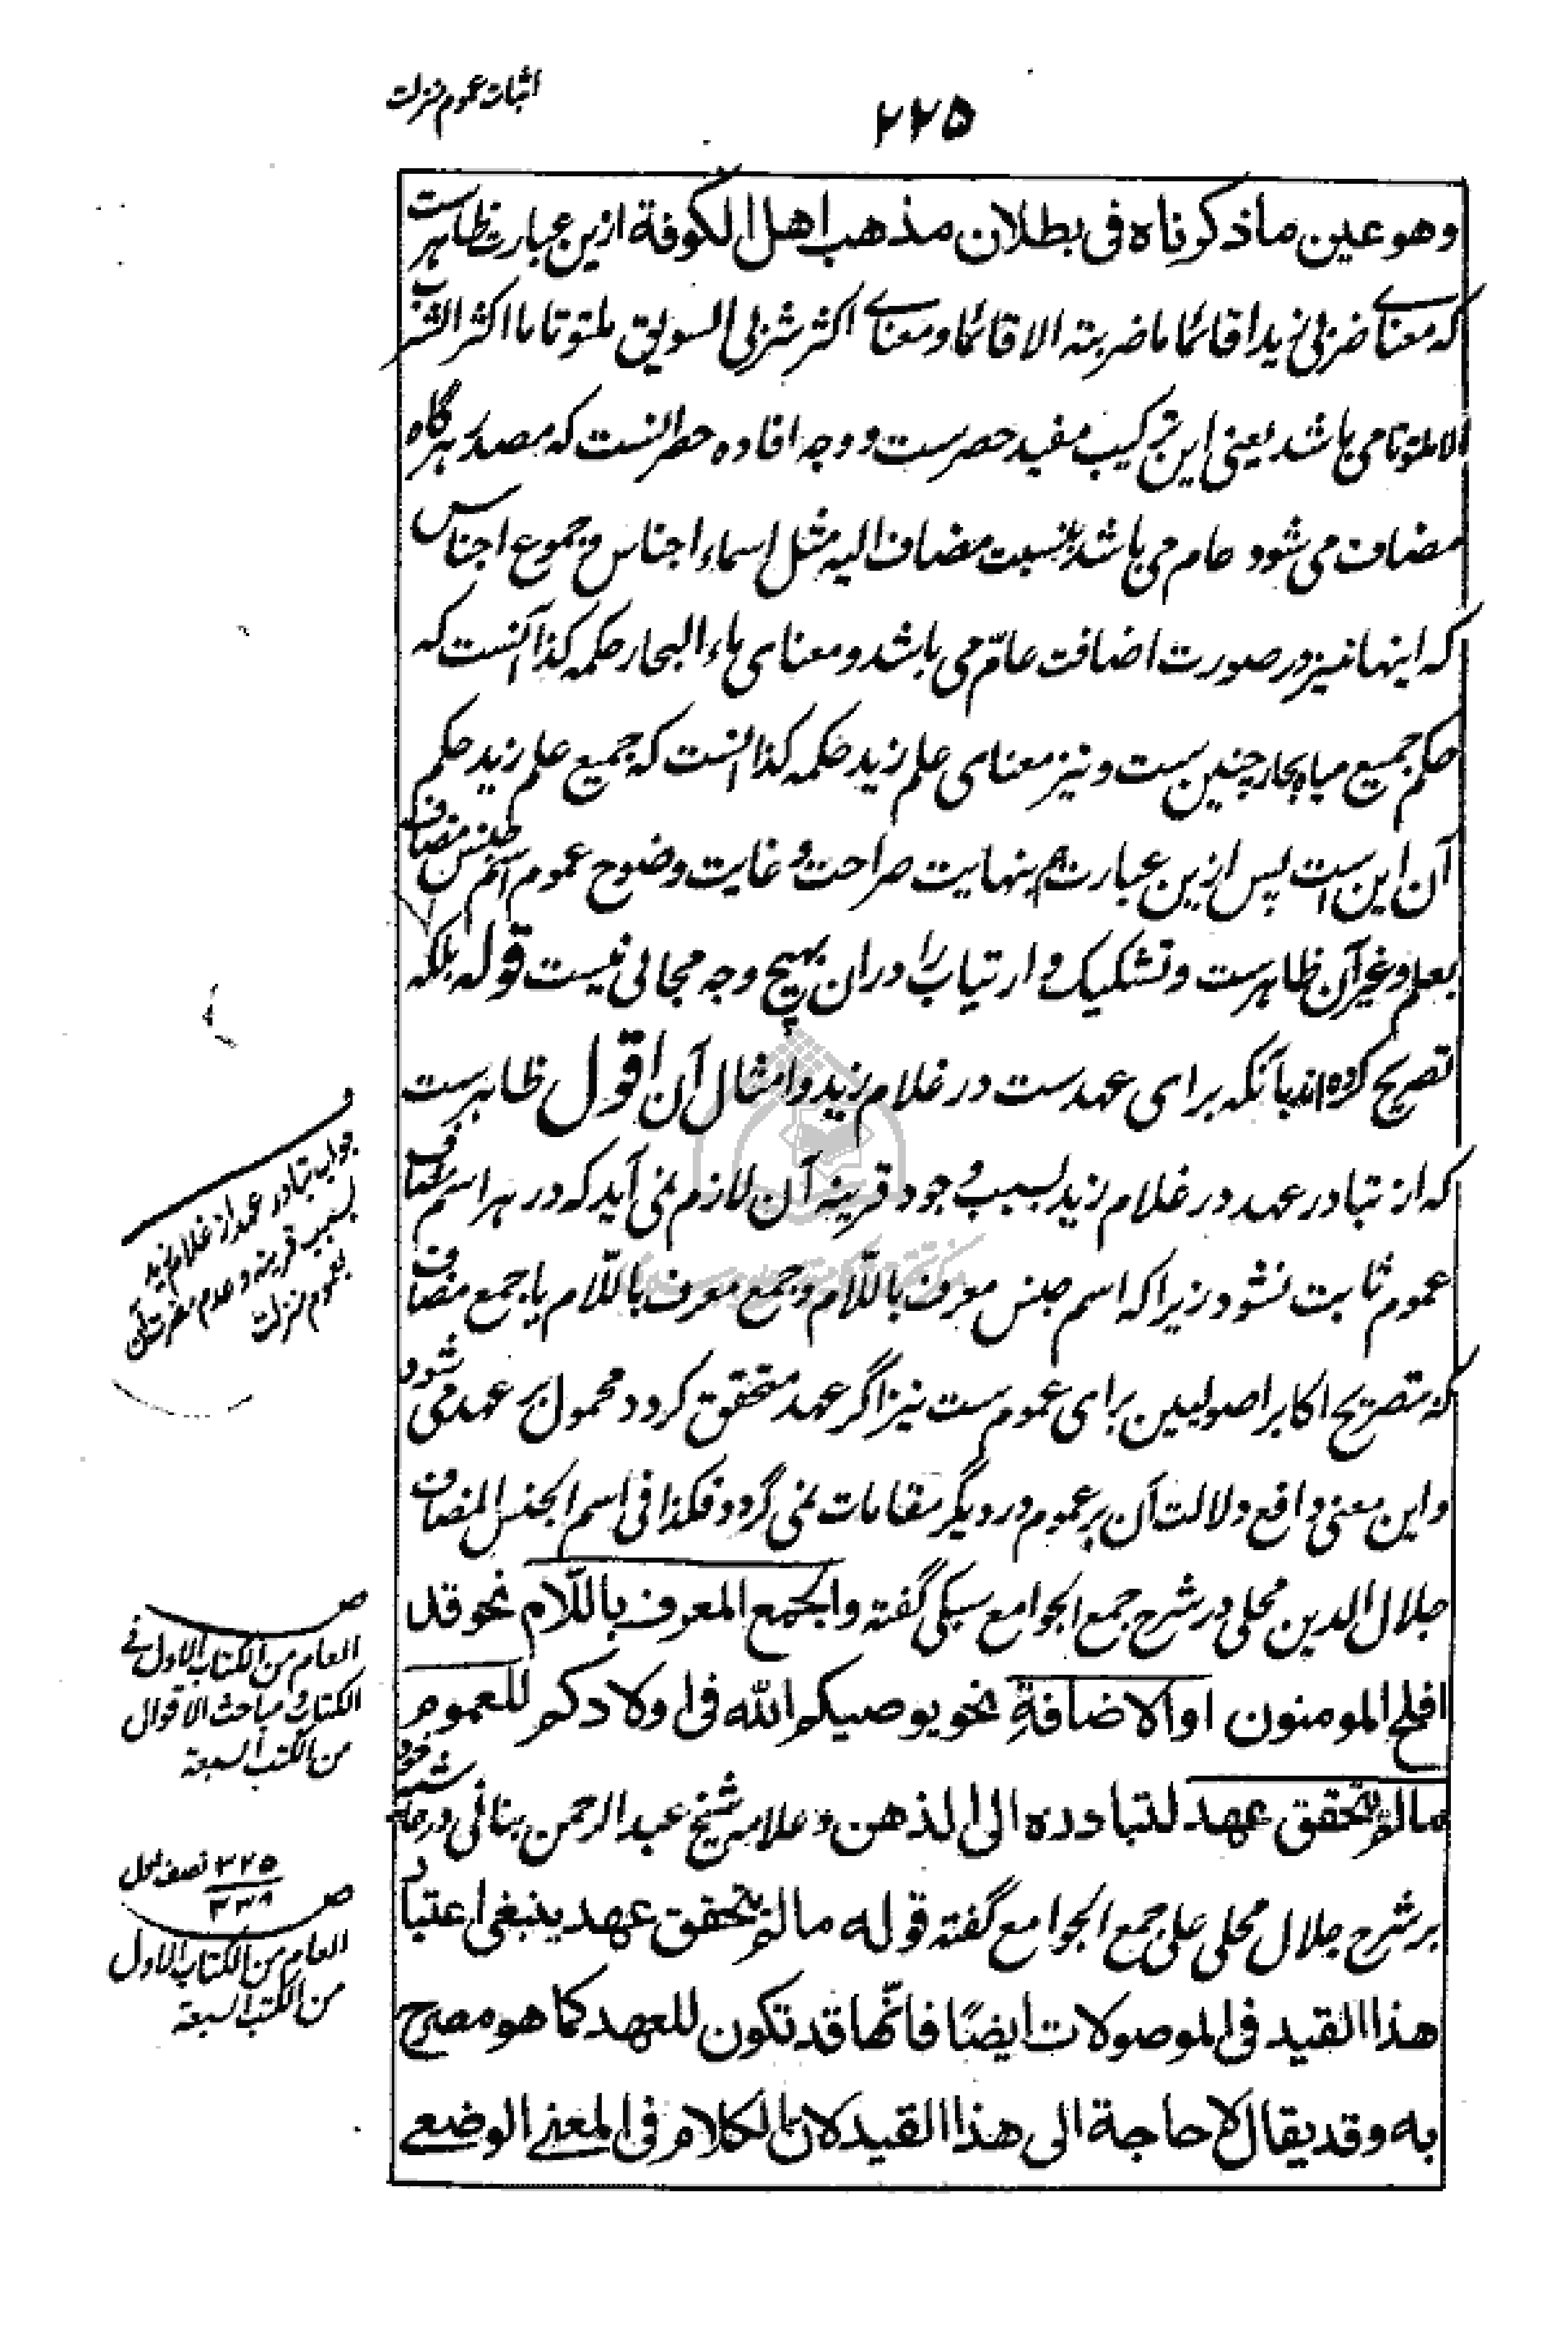 اثبات عموم منزلت
۲۲۵
وهو عين ماذكرناه فى بطلان مذهب اهل الكوفة ازين عبارت ظاهرست
كه معناى ضربى زيدا قائما ما ضربته الا قائما و معناى اكثر شربى السويق ملتوتا ما اكثر الشرب
الا ملتوتا مى باشد يعنى اين تركيب مفيد حصرست و وجه افاده حصر انست كه مصدر هرگاه
مضاف مى شود عام مى باشد بنسبت مضاف اليه مثل اسماء اجناس و جموع اجناس
كه اينها نيز در صورت اضافت عامّ مى باشد و معناى ماء البحار حكمه كذا آنست كه
حكم جميع مياه بحار چنين ست و نيز معناى علم زيد حكمه كذا انست كه جميع علم زيد حكم
آن اين است پس ازين عبارت هم بنهايت صراحت و غايت وضوح عموم اسم جنس مضاف
بعلم و غير آن ظاهرست و تشكيك و ارتياب را دران بهيچ وجه مجالى نيست قوله بلكه
تصريح كرده اند بآنكه براى عهدست در غلام زيد و امثال آن اقول ظاهرست
كه از تبادر عهد در غلام زيد بسبب وجود قرينه آن لازم نمى آيد كه در هر اسم مضاف
عموم ثابت نشود زيرا كه اسم جنس معرف باللّام و جمع معرف باللّام يا جمع مضاف
كه بتصريح اكابر اصوليين براى عموم ست نيز اگر عهد متحقق گردد محمول بر عهد مى شود
و اين معنى دافع دلالت آن بر عموم در ديگر مقامات نمى گردد فكذا فى اسم الجنس المضاف
جلال الدين محلى در شرح جمع الجوامع سبكى گفته والجمع المعرف باللّام نحو قد
افلح المومنون او الاضافةِ نحو يوصيكم الله فى اولادكم للعموم
مالم يتحقق عهد لتبادره الى الذهن و علامه شيخ عبد الرحمن بنانى در حاشيه خود
بر شرح جلال محلى على جمع الجوامع گفته قوله مالم يتحقق عهد ينبغى اعتبار
هذا القيد فى الموصولات ايضًا فانّها قد تكون للعهد كما هو مصرح
به وقد يقال لا حاجة الى هذا القيد لان الكلام فى المعنى الوضعى
ف
جواب تبادر عهد از غلام زيد
بسبب قرينه و عدم مضرت آن
بعموم منزلت
ص
العام من الكتاب الاول فى
الكتاب و مباحث الاقوال
من الكتب السبعة
۳۲۵ نصف اول
ص ۳۳۹
العام من الكتاب الاول
من الكتب السبعة